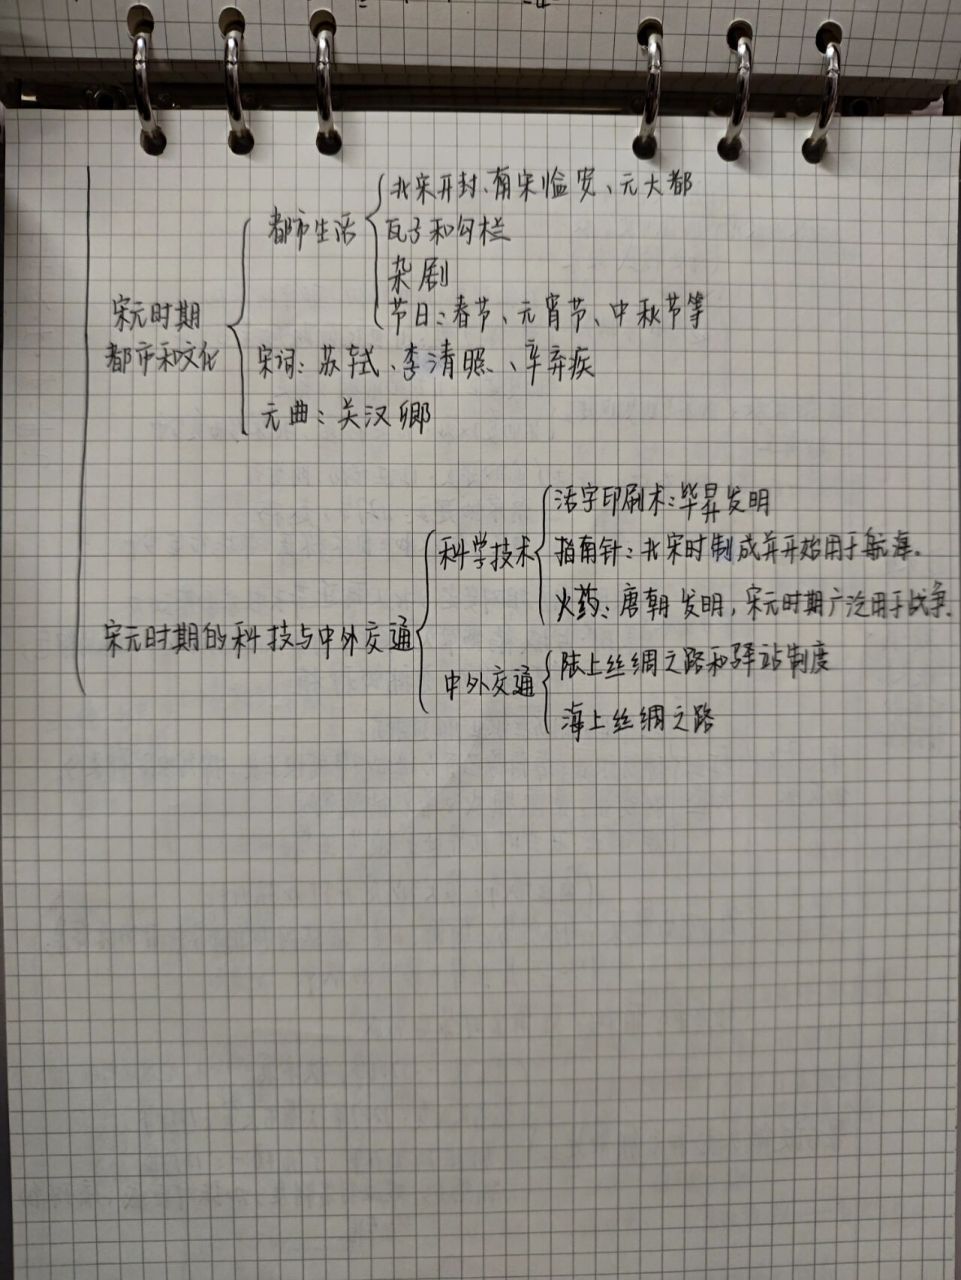 北宋开封、南宋临安、元大都
都市生活
瓦子和勾栏
杂剧
节日：春节、元宵节、中秋节等
宋元时期
都市和文化
宋词：苏轼、李清照、辛弃疾
元曲：关汉卿
活字印刷术：毕昇发明
科学技术
指南针：北宋时制成并开始用于航海.
火药：唐朝发明，宋元时期广泛用于战争.
宋元时期的科技与中外交通
陆上丝绸之路和驿站制度
中外交通
海上丝绸之路